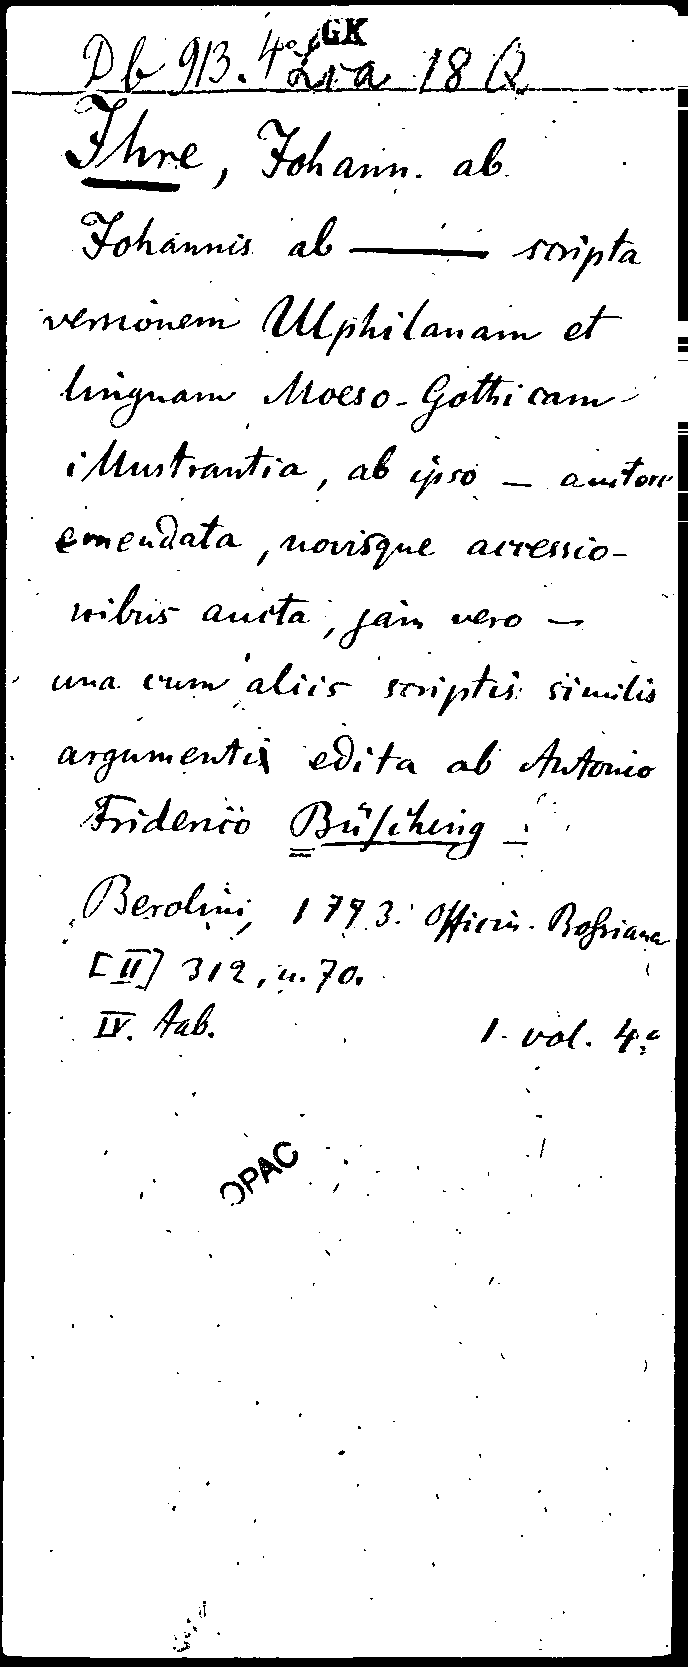 GK
Db 913. 4° Lra 18 Q
Ihre, Johann. ab
Johannis ab — scripta
versionem Ulphilanam et
linguam Moeso-Gothicam
illustrantia, ab ipso — auctore
emendata, novisque accessio-
nibus aucta, jam vero —
una cum aliis scriptis similis
argumenti edita ab Antonio
Friderico Büsching —
Berolini, 1793. Officin. Bossiana
[II] 312, u. 70.
IV. tab. 1. vol. 4°
OPAC